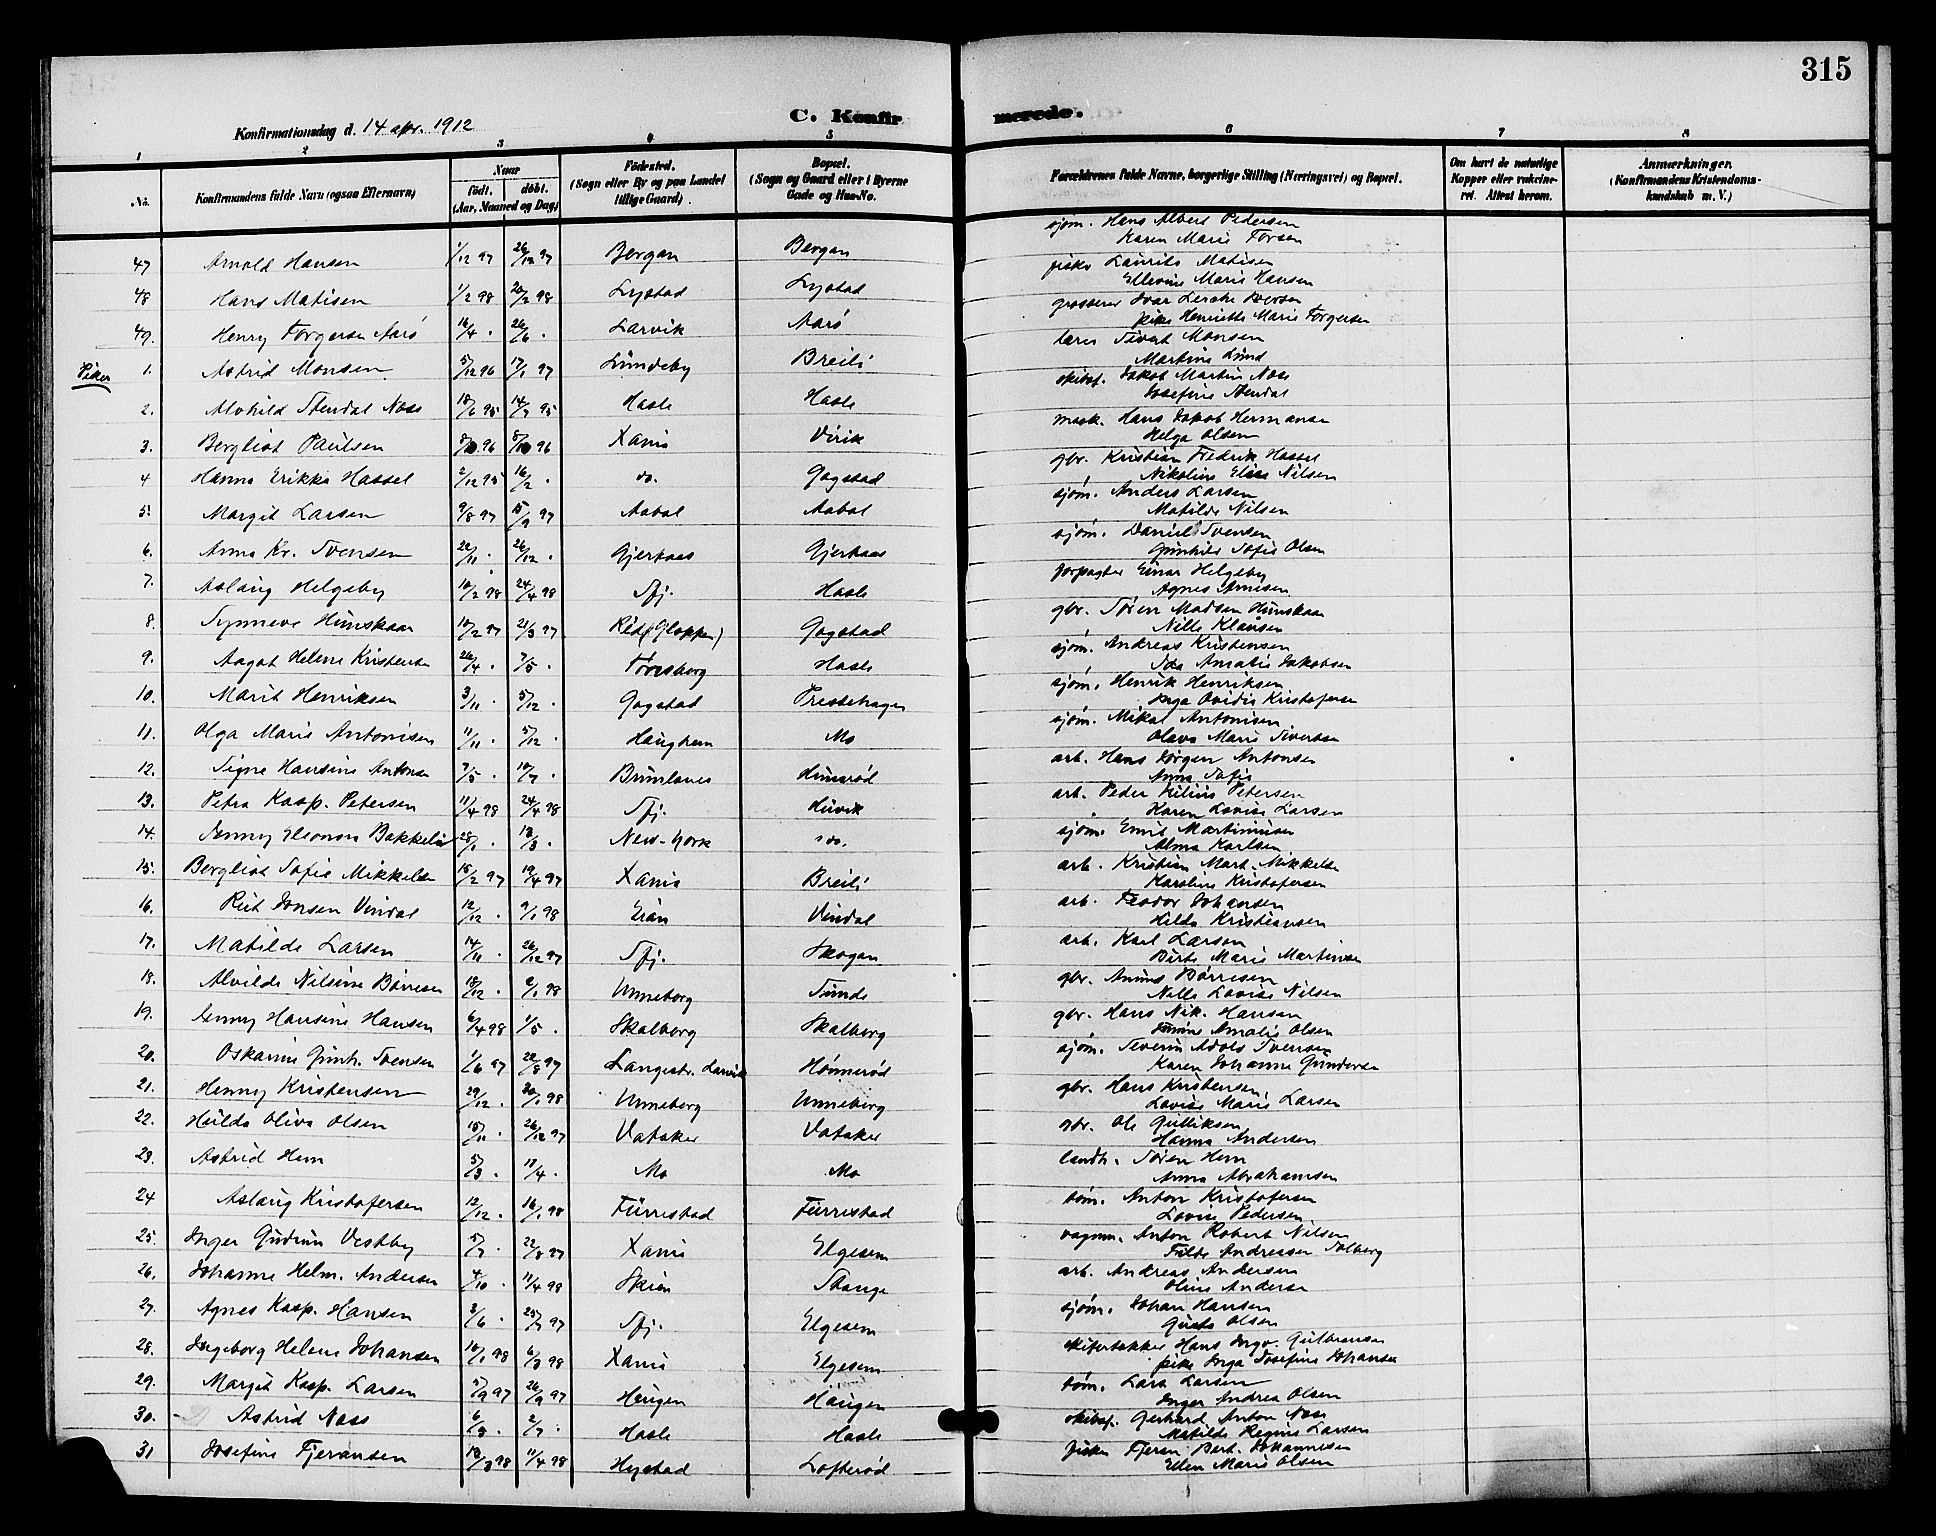 315
C. Konfirmerede.
Konfirmationsdag d. 14 apr. 1912
1 2 3 4 5 6 7 8
No. Konfirmandens fulde Navn (ogsaa Efternavn) Naar født. døbt. (Aar, Maaned og Dag) Fødested. (Sogn eller By og paa Landet tillige Gaard). Bopæl. (Sogn og Gaard eller i Byerne Gade og Hus-No. Forældrenes fulde Navne, borgerlige Stilling (Næringsvei) og Bopæl. Om havt de naturlige Kopper eller vakcineret. Attest herom. Anmærkninger. (Konfirmandens Kristendomskundskab m. V.)
47 Arnold Hansen 1/12 97 26/12 97 Bergan Bergan sjøm. Hans Albert Pedersen
Karen Marie
48 Hans Matisen 1/2 98 20/2 98 Lystad Lystad fisker Laurits Matisen
Ellevine Marie Hansen
49. Henry Torgersen Aarø 16/4 . 26/6 . Larvik Aarø grosserer Ivar Lerche Iversen
pike Henriette Marie Torgersen
Piker
1. Astrid Monsen 5/12 96 17/1 97 Lundeby Breili lærer Sivert Monsen
Martine Lund
2. Alvhild Stendal Næss 18/6 95 14/7 95 Hasle Hasle skibsf. Jakob Martin Næss
Josefine Stendal
3. Bergliot Paulsen Xania Virik mask. Hans Jakob Hermansen
Helga Olsen
4 Hanna Erikka Hassel 2/12 95 16/2 . do. Gogstad gbr. Kristian Fredrik Hassel
Nikoline Elise Nilsen
5. Margit Larsen 9/8 97 15/9 97 Aabol Aabol sjøm. Anders Larsen
Matilde Nilsen
6. Anna Kr. Svensen 22/11 . 26/12 . Gjertnes Gjertnes sjøm. Daniel Svensen
Gunhild Sofie Olsen
7. Aslaug Helgeby 10/2 98 24/4 98 Sfj. Hasle forpagter Einar Helgeby
Agnes Arnesen
8. Synneve Hunskaar 10/2 97 21/3 97 Red (Gloppen) Gogstad gbr. Søren Madsen Hunskaar
Nille Klausen
9. Aagot Helene Kristensen 26/4 . 7/5 . Tønsberg Hasle sjøm. Andreas Kristensen
Ida Amalie Jakobsen
10. Marit Henriksen 3/11 . 5/12 . Gogstad Prestehagen sjøm. Henrik Henriksen
Inga Ovidie Kristofersen
11. Olga Marie Antonisen 11/11 . 5/12 . Haughem Mo sjøm. Mikal Antonisen
Olava Marie Sivertsen
12. Signe Hansine Antonsen 7/5 . 10/7 . Brunlanes Hunsrød arb. Hans Jørgen Antonsen
Anna Sofie
13. Petra Kasp. Petersen 11/4 98 24/4 98 Sfj. Huvik arb. Peder Julius Petersen
Karen Lovise Larsen
14. Jenny Eleonora Bakkeli 28/1 . 13/3 . New-York do. sjøm. Emil Martinusen
Alma Karlsen
15. Bergliot Sofie Mikkelsen 15/2 97 19/4 97 Xania Breili arb. Kristian Mart. Mikkelsen
Karoline Kristofersen
16. Rut Jonsen Vindal 12/12 . 9/1 98 Vindal arb. Teodor Johansen
Hilda Kristiansen
17. Matilde Larsen 14/11 . 26/12 97 Sfj. Skogan arb. Karl Larsen
Birte Marie Martinsen
18. Alvilde Nilsine Børresen 18/12 . 2/1 98 Unneberg Sunde gbr. Børresen
Nille Lovise Nilsen
19. Jenny Hansine Hansen 6/4 98 1/5 . Skalberg Skalberg gbr. Hans Nik. Hansen
Amalie Olsen
20. Oskarine Gunh. Svensen 1/6 97 22/8 97 Langestr. Larvik Hønnerød sjøm. Severin Adolf Svensen
Karen Johanne Gundersen
21. Henny Kristensen 29/12 . 30/1 98 Unneberg Unneberg gbr. Hans Kristensen
Lovise Marie Larsen
22. Hulda Oliva Olsen 15/11 . 26/12 97 Vataker Vataker gbr. Ole Gulliksen
Hanna Andersen
23. Astrid Hem 5/3 . 11/4 . Mo Mo landh. Søren Hem
Anna Abrahamsen
24 Aslaug Kristofersen 12/12 . 16/1 98 Furrestad Furrestad tøm. Anton Kristofersen
Lovise Pedersen
25. Inger Gudrun Vestby 5/7 . 22/8 97 Xania Elgesem vognm. Anton Robert Nilsen
Andreassen Solberg
26. Johanne Helm. Andersen 4/10 . 11/4 98 Skien Stange arb. Andreas Andersen
Oline Andersen
27. Agnes Kasp. Hansen 3/6 . 25/7 97 Sfj. Elgesem sjøm. Johan Hansen
Olsen
28. Ingeborg Helene Johansen 16/1 98 6/3 98 Xania Elgesem skifertækker Hans Ingv. Gulbransen
pike Inga Josefine Johansen
29. Margit Kasp. Larsen 5/9 97 26/9 97 Haugen Haugen tøm. Lars Larsen
Inger Andrea Olsen
30. Astrid Næss 2/7 . Hasle Hasle skibsf. Gerhard Anton Næss
Matilde Regine Larsen
31 Josefine Fjeransen 13/3 98 11/4 98 Hystad Lofterød fisker Fjeran Bert. Johannesen
Ellen Marie Olsen